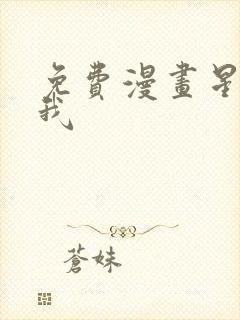 免費漫畫星
我
蒼妹